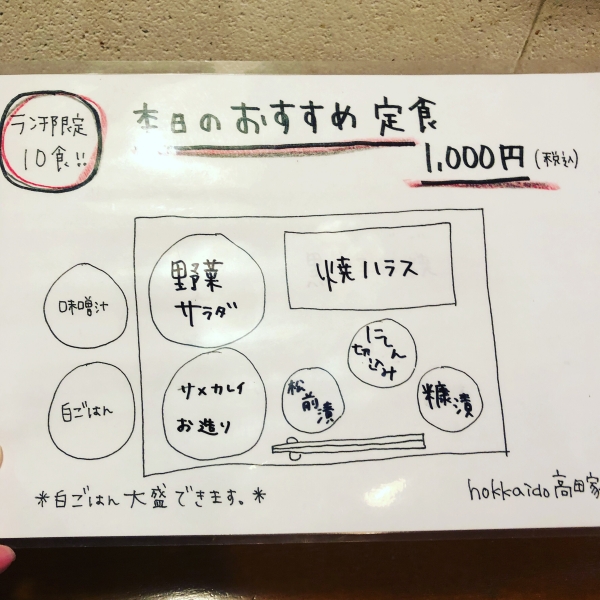 ランチ限定
10食!!
本日のおすすめ定食
1,000円(税込)
野菜
サラダ
焼ハラス
味噌汁
にしん
切込み
白ごはん
サメカレイ
お造り
松
前
漬
糠漬
*白ごはん大盛できます。*
hokkaido高田家